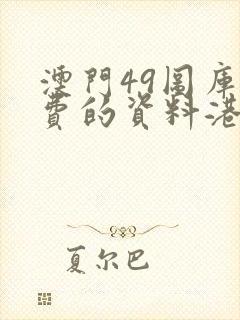 澳門49圖庫
費的資料港
夏尔巴